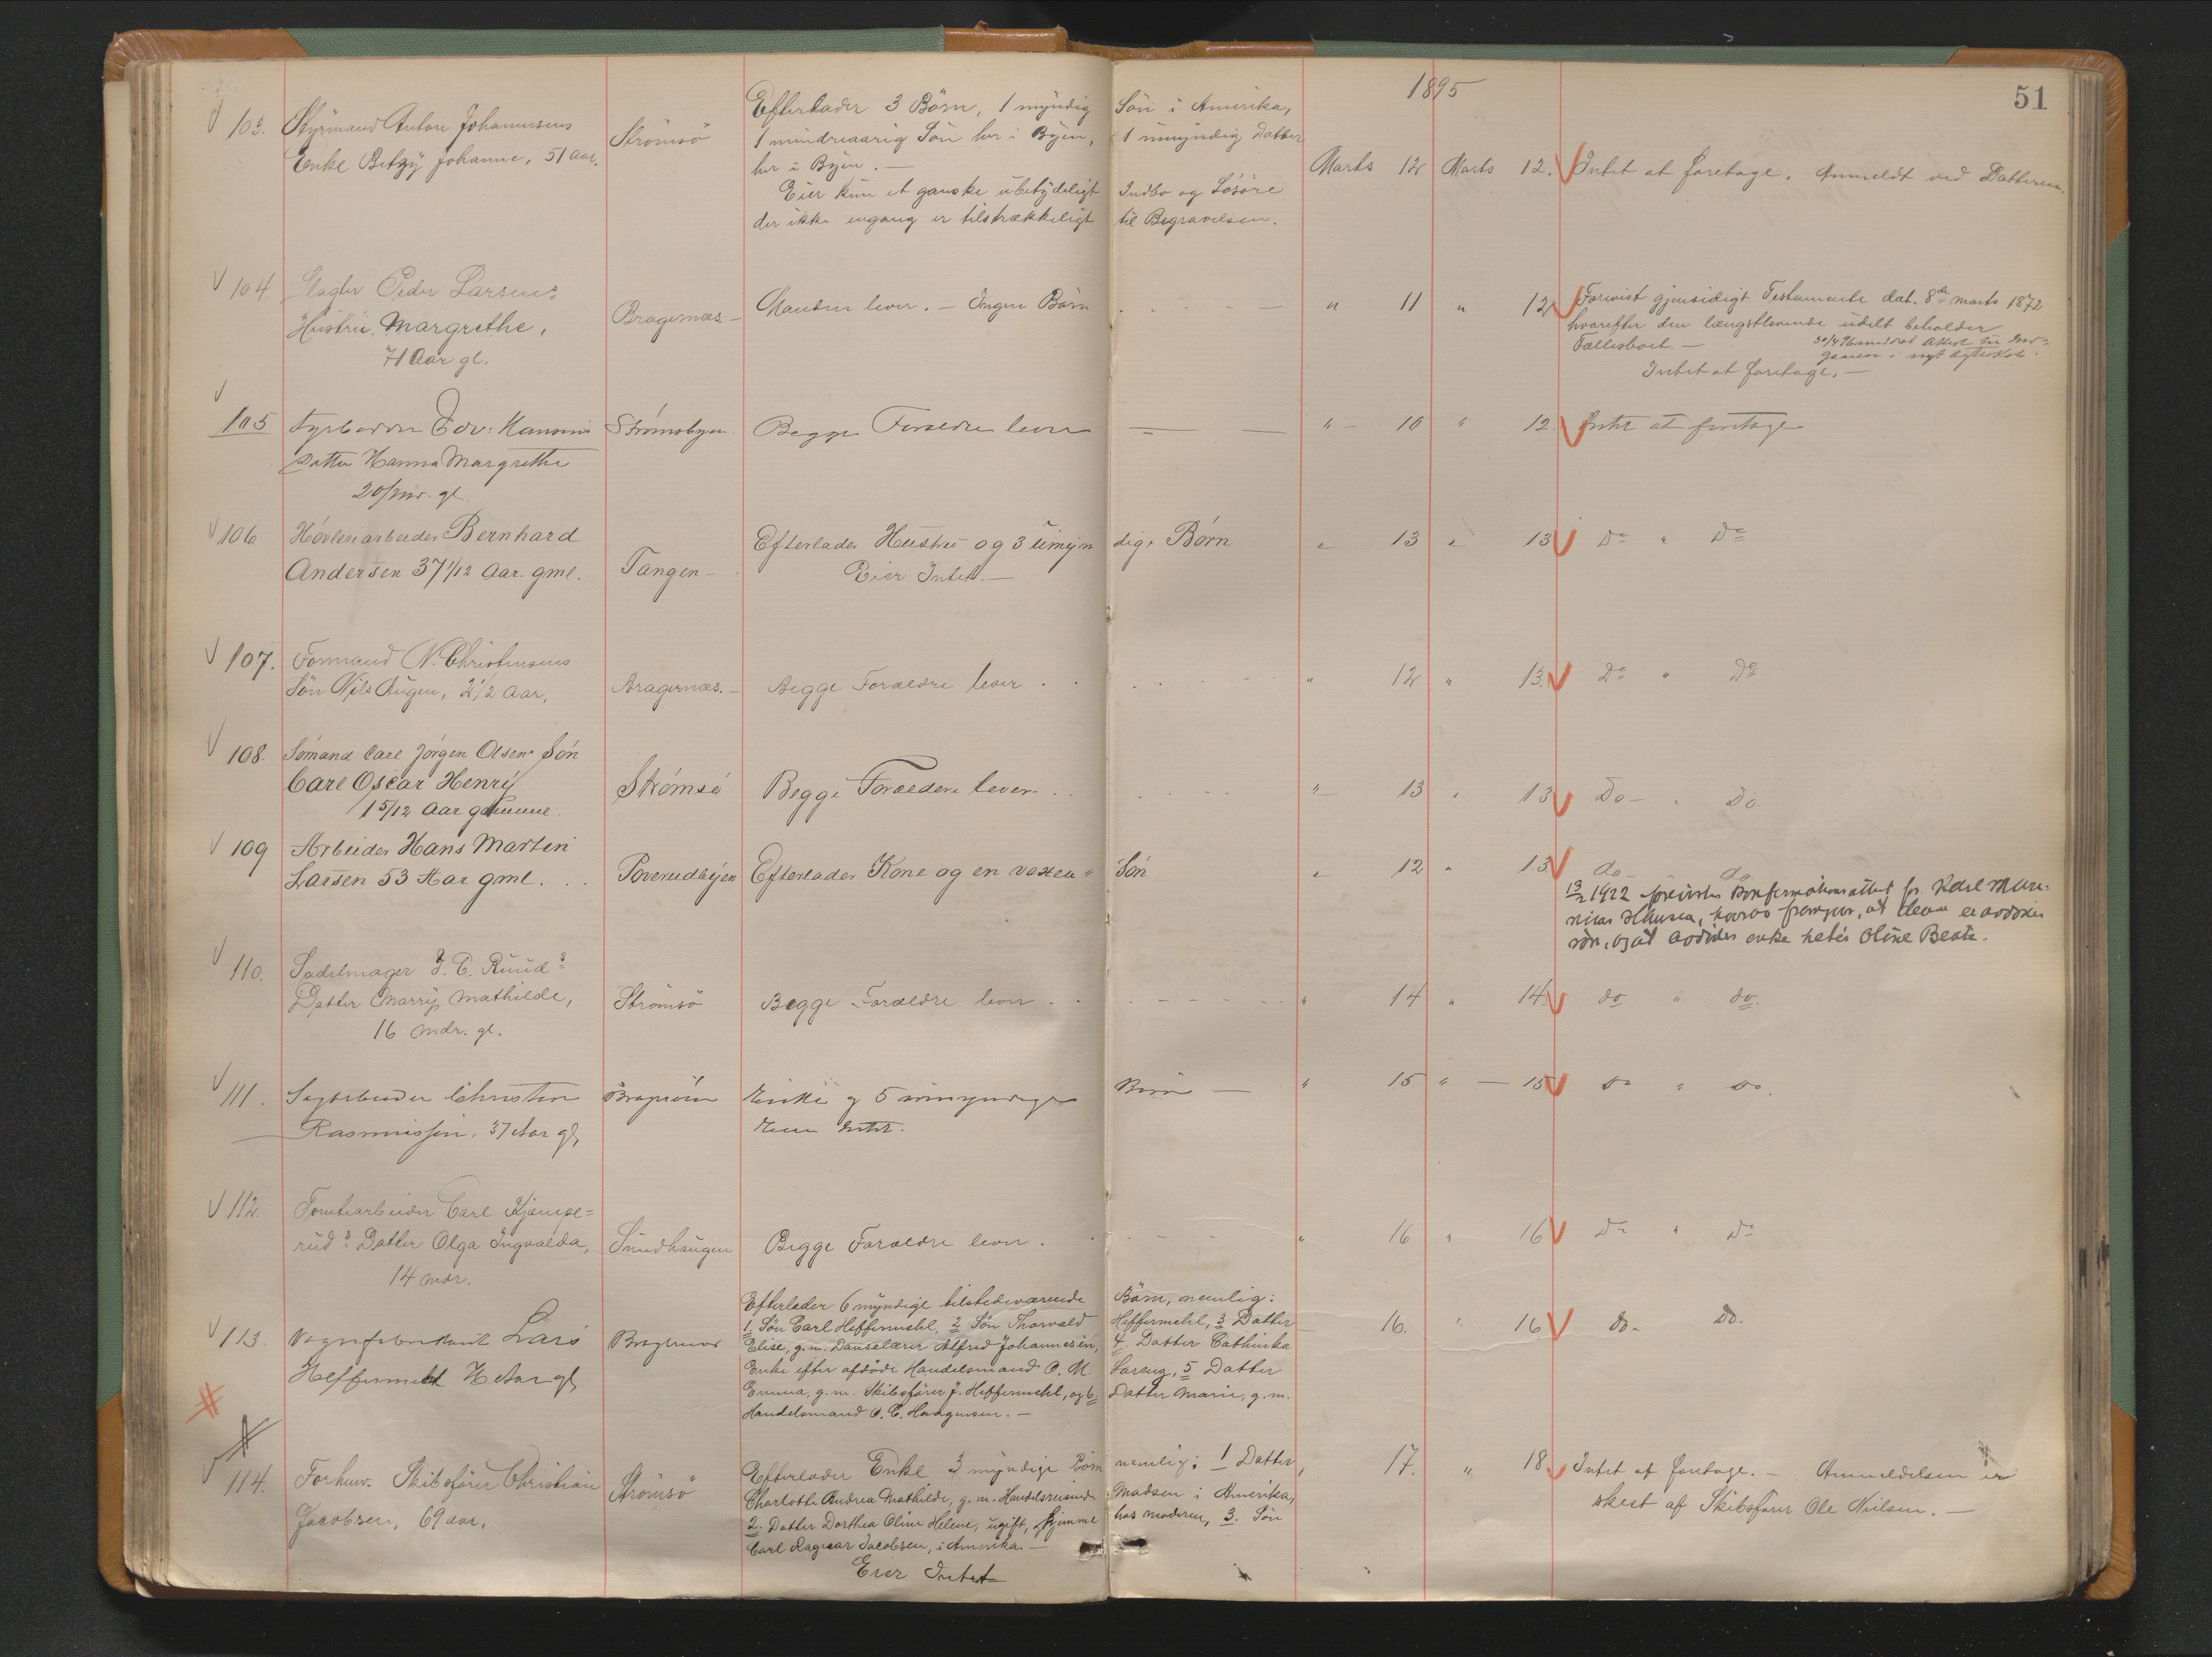 1895
51
103. Styrmand Anton Johannesens
Enke Betzy Johanne, 51 aar.
Strömsö
Efterlader 3 Börn, 1 myndig Sön i Amerika,
1 mindreaarig Sön her i Byen, 1 umyndig Datter
her i Byen. —
Eier kun et ganske ubetydeligt Indbo og Lösöre
der ikke engang er tilstrækkeligt til Begravelsen.
Marts 12 Marts 12. Intet at foretage. Anmeldt ved Datteren.
104. Slagter Peder Larsens
Hustru Margrethe,
71 Aar gl.
Bragernæs —
Manden lever. — Ingen Börn
" 11 " 12
Forevist gjensidigt Testamente dat. 8de marts 1872
hvorefter den længstlevende udelt beholder
Fællesboet. —
Intet at foretage. —
105 Fyrböder Edv. Hansens
Datter Hanna Margrethe
20 Mdr. gl.
Strömsbyen
Begge Forældre lever
" 10 " 12. Intet at foretage
106 Hövleriarbeider Bernhard
Andersen 37 1/12 Aar. gml.
Tangen —
Efterlader Hustru og 3 umyndige Börn
Eier Intet. —
" 13 " 13 Do " Do
107. Formand N. Christensens
Sön Nils Augen, 2 1/2 Aar,
Bragernæs. —
Begge Forældre lever
" 12 " 13. Do " Do
108. Sömand Carl Jörgen Olsens Sön
Carl Oscar Henry
1 5/12 Aar gamme.
Strömsö
Begge Forældere lever
" 13 " 13 Do — " Do.
109 Arbeider Hans Martin
Larsen 53 Aar gml.
Poverudbyen
Efterlader Kone og en voxen Sön
" 12 " 13 do do
1922 forevistes Konfirmationsattest for Karl
Hansen, hvorav fremgaar, at denne er avdödes
sön, og at avdödes enke heter Oline Beate.
110. Sadelmager J. C. Ruuds
Datter Marry Mathilde,
16 Mdr. gl.
Strömsö
Begge Forældre lever
" 14 " 14 do " do.
111. Sagarbeider Christen
Rasmussen, 37 Aar gl,
Enke og 5 umyndige Börn —
Eier Intet.
" 15 " — 15 Do " Do.
112. Tomtearbeider Carl Kjempe=
ruds Datter Olga Ingvalda,
14 mdr.
Sundhaugen
Begge Forældre lever.
" 16 " 16 Do " Do
113. Vognfabrikant Lars
Heffermehl Aar gl
Bragernæs
Efterlader 6 myndige tilstedeværende Börn, nemlig:
1. Sön Carl Heffermehl, 2 Sön Thorvald Heffermehl, 3 Datter
Elise, g. m. Danselærer Alfred Johannesen, 4. Datter Cathinka
Enke efter afdöde Handelsmand O. M. Lorang, 5 Datter
Emma, g. m. Skibsförer J. Heffermehl, og 6. Datter Marie, g. m.
Handelsmand O. C. Haagensen. —
16. " 16 do — Do.
114. Forhenv. Skibsförer Christian
Jacobsen, 69 aar,
Strömsö
Efterlader Enke 3 myndige Börn nemlig: 1 Datter
Charlotte Andrea Mathilde, g. m. Handelsreisende Madsen i Amerika,
2. Datter Dorthea Oline Helene, ugift, hjemme hos moderen, 3. Sön
Carl Ragnar Jacobsen, i Amerika. —
Eier Intet
17. " 18. Intet at foretage. — Anmeldelsen er
skeet af Skibsförer Ole Nielsen. —